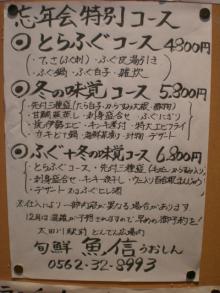 忘年会特別コース
◎とらふぐコース 4800円
・てっさ(ふぐ刺) ・ふぐ皮湯引き
・ふぐ鍋 ・ふぐ白子 ・雑炊
◎冬の味覚コース 5.800円
・先付三種盛(たら白子・からすみ大根・酢物)
・甘鯛蕪蒸し ・刺身盛合せ ・ふぐにぎり
・牧の伊勢エビ ・キンキ煮付 ・特大エビフライ
・カキどて鍋 ・海鮮茶漬け ・汁物 ・デザート
◎ふぐ+冬の味覚コース 6.800円
・とらふぐコース ・先付三種盛
・刺身盛合せ ・キンキ煮付
・デザート
※仕入によって一部内容が異なる場合があります
12月は混雑が予想されますので早めの御予約を!
太田川駅前 とんてん広場内
旬鮮 魚信 うおしん
0562-32-8993